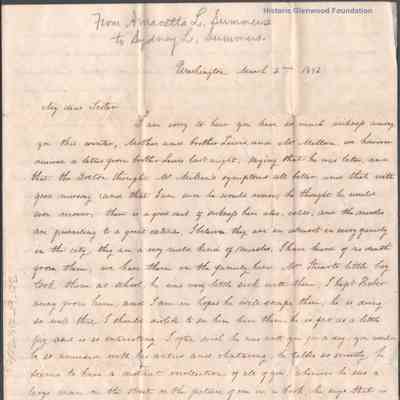 Historic Glenwood Foundation
From Amacetta L. Summers
to Sydney L. Summers.
Washington March 2nd 1842
My dear Sister
I am sorry to hear you have so much sickness among
you this winter, Mother and brother Lewis and Mr We have
received a letter from brother Lewis last night, saying that he was better, and
that the Doctor thought Mr symptoms all better and that with
good nursing and that I am sure he would have, he thought he would
soon recover, there is a good deal of sickness here also, colds, and the measles
are prevailing to a great extent. I believe they are in almost every family
in the city, they are a very mild kind of measles, I have heard of no death
from them, we have them in the family here. Mr Stuarts little boy
took them at school, he was very little sick with them, I kept
away from him, and I am in hopes he will escape them, he is doing
so well that I should dislike to see him have them he is fat as a little
pig and is so interesting. I often wish he was with you for a day, you would
be so amused with his actions and chattering, he talks so sweetly, he
seems to have a distinct recollection of all of you, whenever he sees a
large man on the street or the picture of one in a book, he says that is